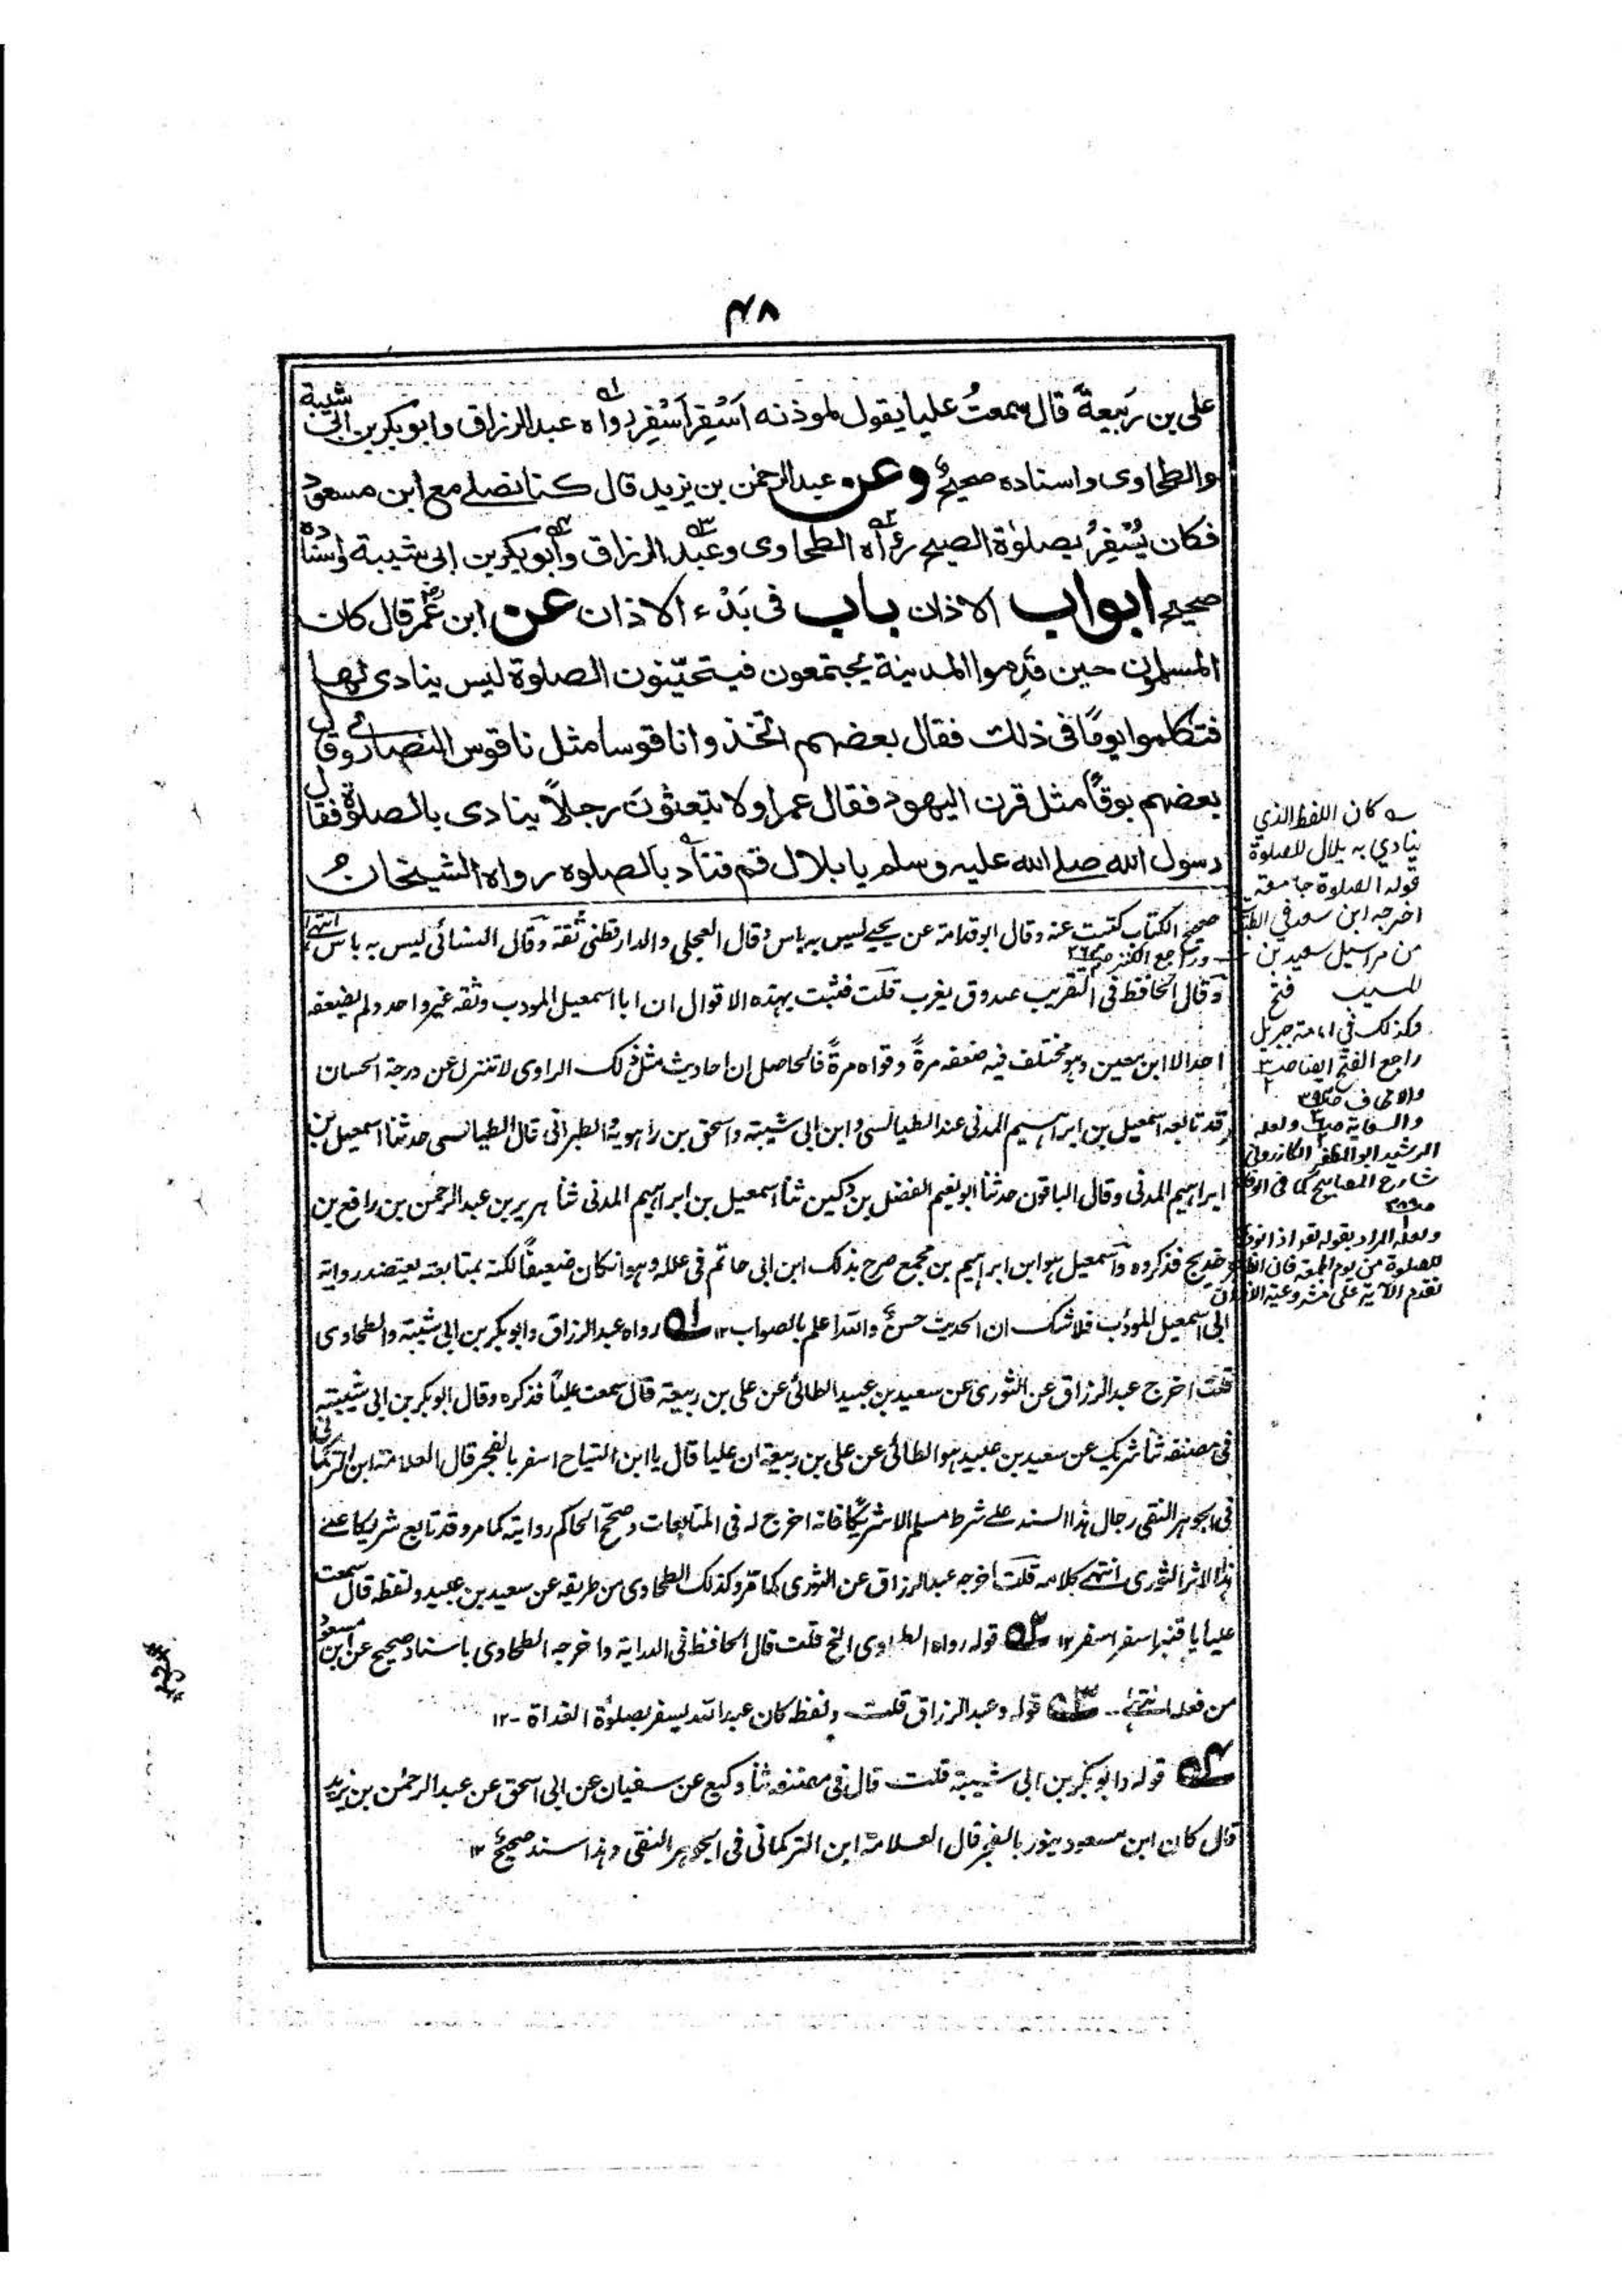 ٤٨
على بن رَبيعة قال سمعتُ عليا يقول لموذنه اَسْفِر اَسْفِر رواه عبد الرزاق وابوبكر بن ابى شيبة
والطحاوى واسناده صحيح وعن عبد الرحمٰن بن يزيد قال كنا نصلے مع ابن مسعود
فكان يُسْفِرُ بصلوٰة الصبح رواه الطحاوى وعبد الرزاق وابوبكر بن ابى شيبة واسناده
صحيح ابواب الاذان باب فى بَدْء الاذان عن ابن عُمر قال كان
المسلمون حين قدِموا المدينة يجتمعون فيتحيّنون الصلوة ليس ينادى لها
فتكلموا يومًا فى ذلك فقال بعضهم اتخذوا ناقوسا مثل ناقوس النصارى وقال
بعضهم بوقًا مثل قرن اليهود فقال عمر اولا تبعثون رجلاً ينادى بالصلوة فقال
رسول الله صلے الله عليه وسلم يا بلال قم فناد بالصلوة رواه الشيخان
صحيح الكتاب كتبت عنه وقال ابو قدامة عن يحيے ليس به باس وقال العجلى والدارقطنى ثقة وقال النسائى ليس به باس انتهے
وراجع الكنز
وقال الحافظ فى التقريب صدوق يغرب قلت فثبت بهذه الاقوال ان ابا اسمعيل المودب وثقه غير واحد ولم يضعفه
احد الا ابن معين وهو مختلف فيه ضعفه مرةً وقواه مرةً فالحاصل ان احاديث مثل ذلك الراوى لا تنزل عن درجة الحسان
وقد تابعه اسمعيل بن ابراهيم المدنى عند الطيالسى وابن ابى شيبة واسحق بن راهويه والطبرانى قال الطيالسى حدثنا اسمعيل بن
ابراهيم المدنى وقال الباقون حدثنا ابو نعيم الفضل بن دكين ثنا اسمعيل بن ابراهيم المدنى ثنا هرير بن عبد الرحمٰن بن رافع بن
خديج فذكروه واسمعيل هو ابن ابراهيم بن مجمع صرح بذلك ابن ابى حاتم فى علله وهو انكان ضعيفًا لكنه بمتابعته يعتضد رواية
ابى اسمعيل المؤدب فلا شك ان الحديث حسن والله اعلم بالصواب ١٢ ٥١ رواه عبد الرزاق وابوبكر بن ابى شيبة والطحاوى
قلت اخرج عبد الرزاق عن الثورى عن سعيد بن عبيد الطائى عن على بن ربيعة قال سمعت علياً فذكره وقال ابوبكر بن ابى شيبة
فى مصنفه ثنا شريك عن سعيد بن عبيد هو الطائى عن على بن ربيعة ان عليا قال يا ابن التياح اسفر بالفجر قال العلامة ابن التركمانى
فى الجوهر النقى رجال هذا السند على شرط مسلم الا شريكًا فانه اخرج له فى المتابعات وصحح الحاكم روايته كما مر وقد تابع شريكا على
هذا الاثر الثورى انتهے كلامه قلت اخرجه عبد الرزاق عن الثورى كما مر وكذلك الطحاوى من طريقه عن سعيد بن عبيد ولفظه قال سمعت
عليا يا قنبر اسفر اسفر ١٢ ٥٢ قوله رواه الطحاوى الخ قلت قال الحافظ فى الدراية واخرجه الطحاوى باسناد صحيح عن ابن مسعود
من فعله انتهے ٥٣ قوله وعبد الرزاق قلت ولفظه كان عبد الله يسفر بصلوٰة الغداة - ١٢
٥٤ قوله وابوبكر بن ابى شيبة قلت قال فى مصنفه ثنا وكيع عن سفيان عن ابى اسحق عن عبد الرحمٰن بن يزيد
قال كان ابن مسعود ينور بالفجر قال العلامة ابن التركمانى فى الجوهر النقى وهذا سند صحيح ١٢
كان اللفظ الذي
ينادي به بلال للصلوة
قوله الصلوة جامعة
اخرجه ابن سعد في الطبقات
من مراسيل سعيد بن
المسيب فتح
وكذلك في امامة جبريل
راجع الفتح ايضا
والسعاية ولعله
الرشيد ابو المظفر الكازروني
شارح المصابيح كما في الوفا
ولعله المراد بقوله تعم اذا نودي
للصلوة من يوم الجمعة فان الظاهر
تقدم الآية على مشروعية الاذان